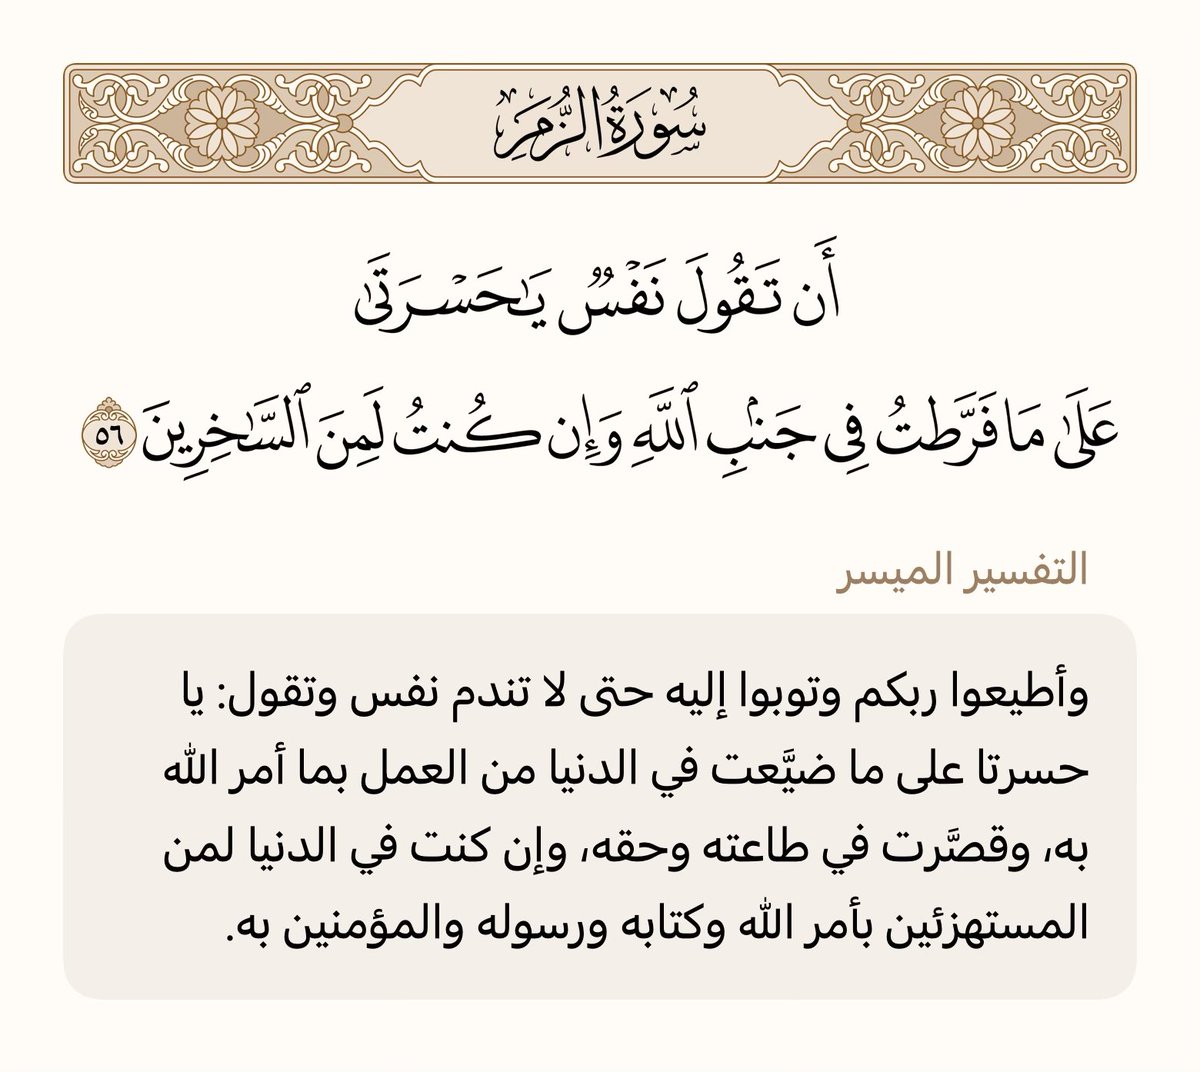 سُورَةُ الزُّمَرِ
أَن تَقُولَ نَفۡسٞ يَٰحَسۡرَتَىٰ
عَلَىٰ مَا فَرَّطتُ فِي جَنۢبِ ٱللَّهِ وَإِن كُنتُ لَمِنَ ٱلسَّٰخِرِينَ ٥٦
التفسير الميسر
وأطيعوا ربكم وتوبوا إليه حتى لا تندم نفس وتقول: يا
حسرتا على ما ضيَّعت في الدنيا من العمل بما أمر الله
به، وقصَّرت في طاعته وحقه، وإن كنت في الدنيا لمن
المستهزئين بأمر الله وكتابه ورسوله والمؤمنين به.